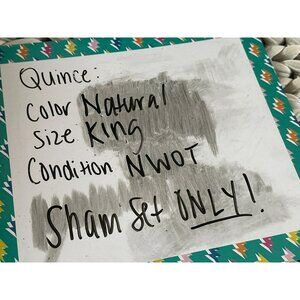 Quince:
Color Natural
Size King
Condition NWOT
Sham Set ONLY!